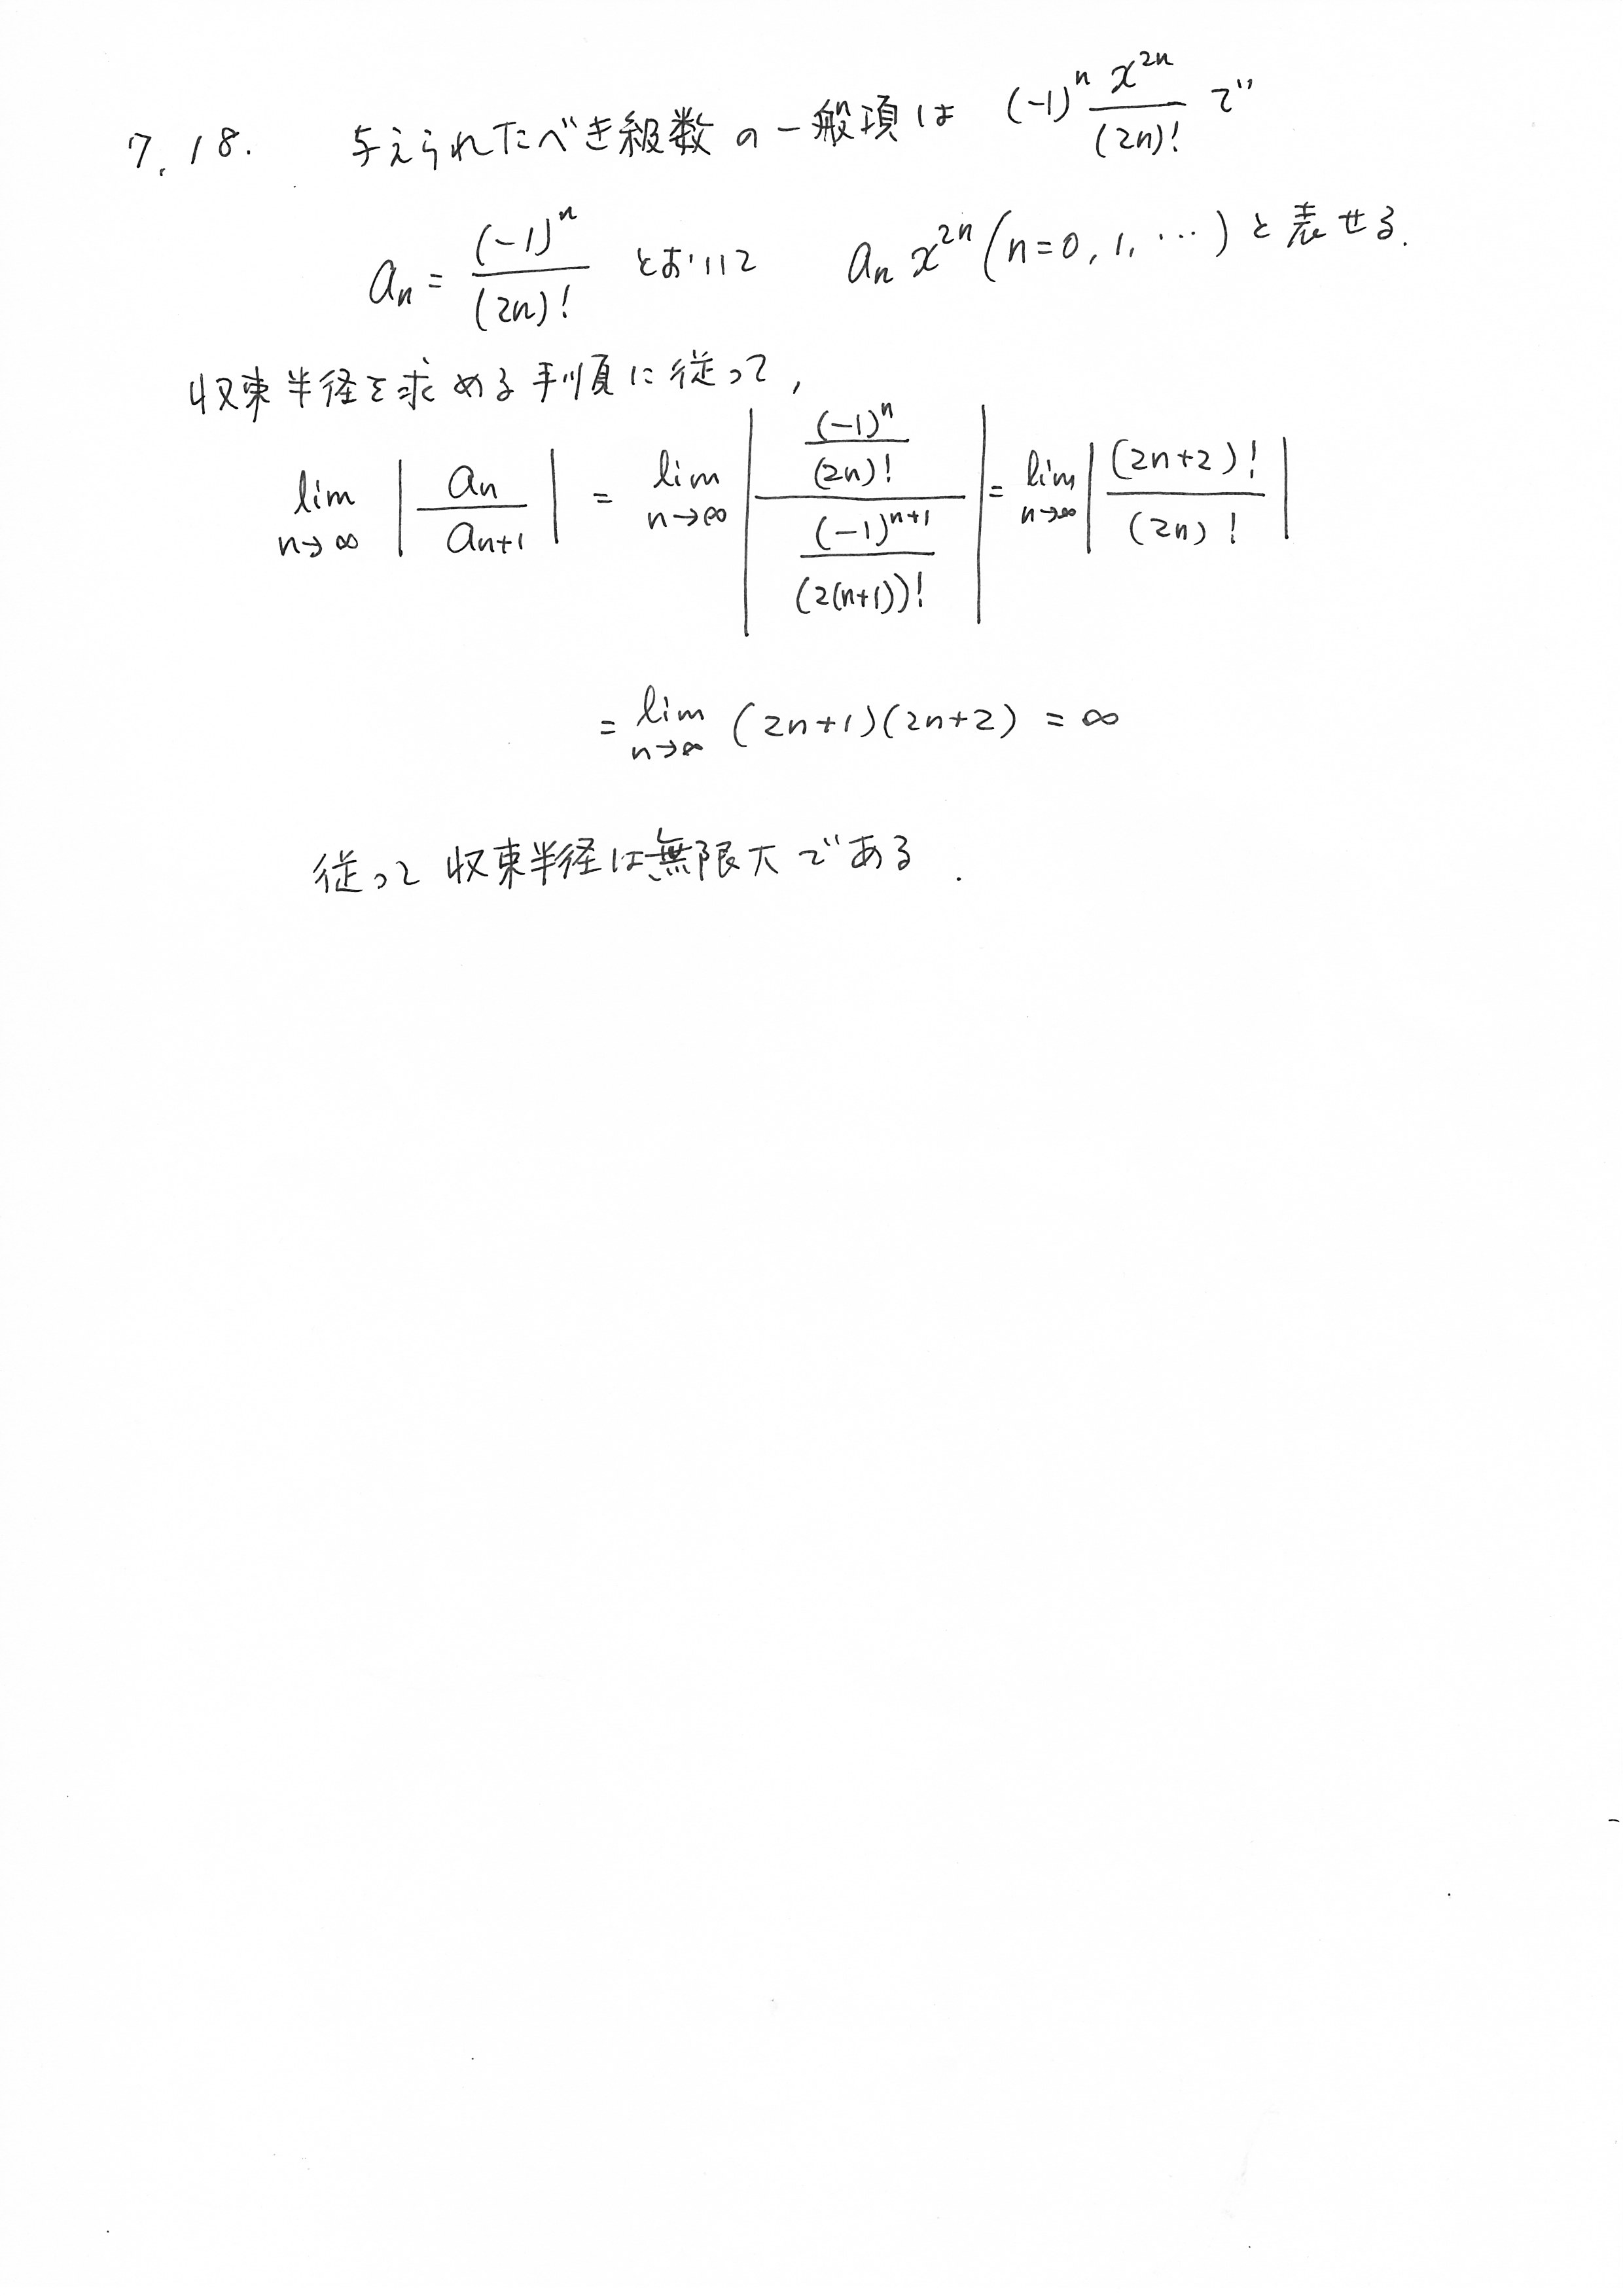 7.18. 与えられたべき級数の一般項は (-1)^n \frac{x^{2n}}{(2n)!} で
a_n = \frac{(-1)^n}{(2n)!} とおいて a_n x^{2n} (n=0, 1, ⋯) と表せる.
収束半径を求める手順に従って,
\lim_{n→∞} \left| \frac{a_n}{a_{n+1}} \right| = \lim_{n→∞} \left| \frac{\frac{(-1)^n}{(2n)!}}{\frac{(-1)^{n+1}}{(2(n+1))!}} \right| = \lim_{n→∞} \left| \frac{(2n+2)!}{(2n)!} \right|
= \lim_{n→∞} (2n+1)(2n+2) = ∞
従って収束半径は無限大である.